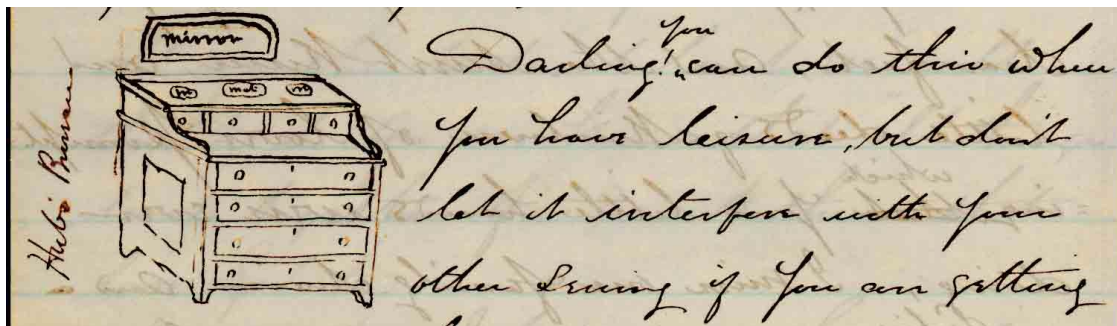 mirror
mat
Hub's Bureau
Darling! you can do this when
you have leisure, but don't
let it interfere with your
other Sewing if you are getting